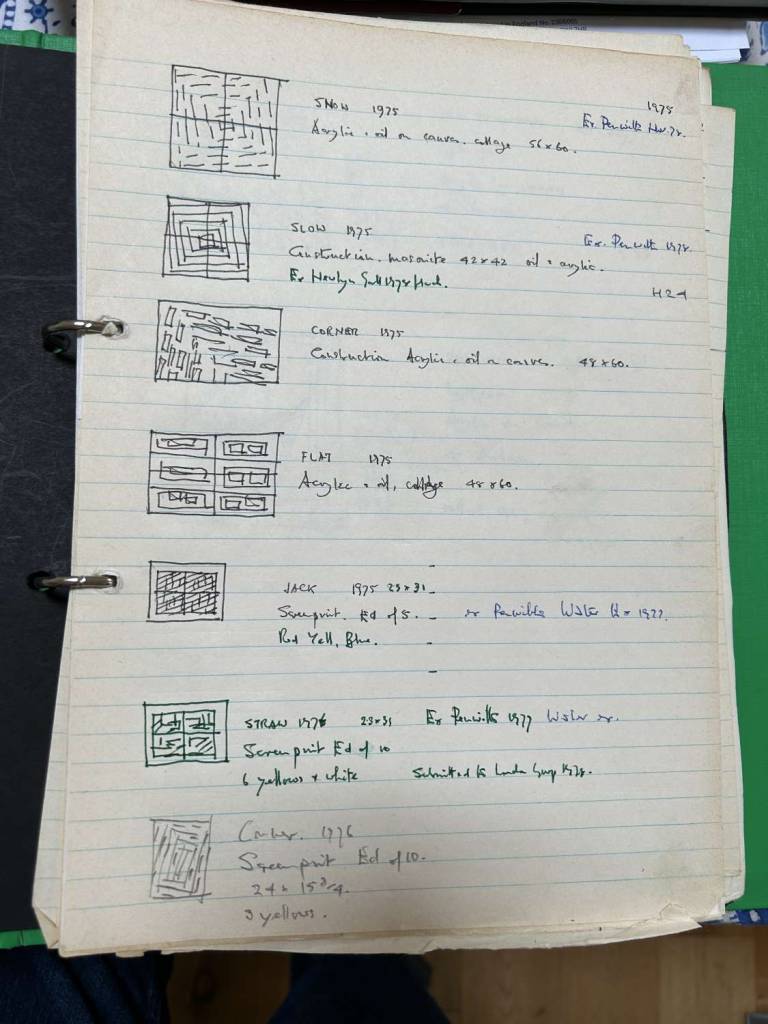 SNOW 1975
1975
Acrylic + oil on canvas. collage 56x60.
Ex. Penwith
SLOW 1975
Ex. Penwith 1978.
Construction. masonite 42x42 oil + acrylic.
Ex Newlyn Gall 1978
H 24
CORNER 1975
Construction Acrylic + oil on canvas. 48x60.
FLAT 1975
Acrylic + oil, collage 48x60.
JACK 1975 23x31
Screenprint. Ed of 5. ex Penwith Winter Ex 1977.
Red Yell. Blue.
STRAW 1976 23x31 Ex Penwith 1977 Winter ex.
Screenprint Ed of 10
6 yellows + white Submitted to London Group 1978.
1976
Screenprint Ed of 10.
24 x 15 3/4.
3 yellows.